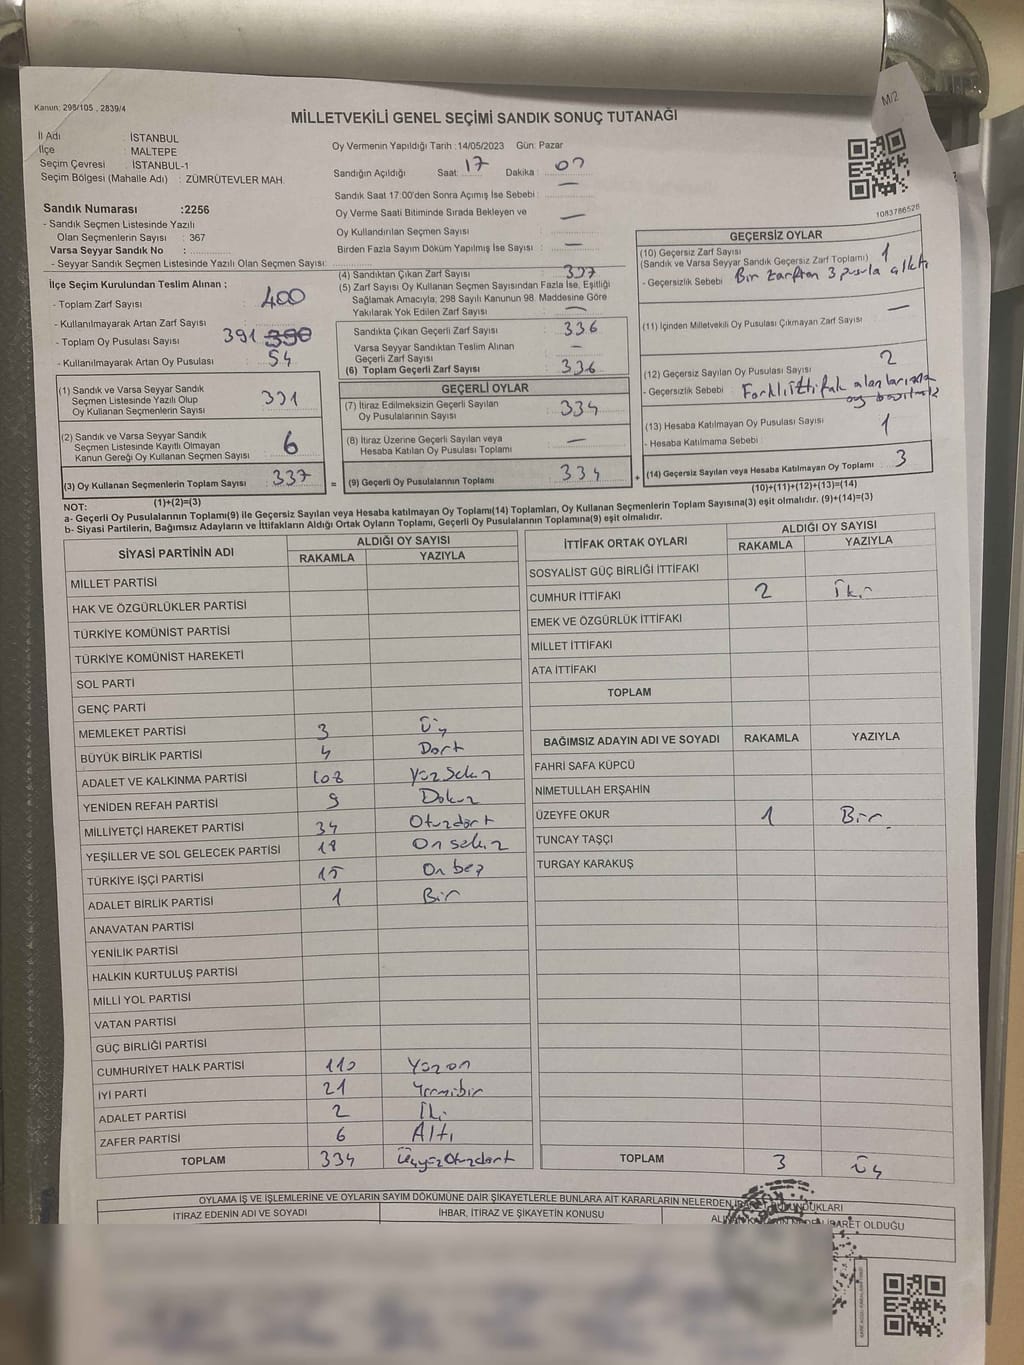 Kanun: 298/105 , 2839/4
M/2
MİLLETVEKİLİ GENEL SEÇİMİ SANDIK SONUÇ TUTANAĞI
İl Adı : İSTANBUL
İlçe : MALTEPE
Seçim Çevresi : İSTANBUL-1
Seçim Bölgesi (Mahalle Adı) : ZÜMRÜTEVLER MAH.
Sandık Numarası :2256
- Sandık Seçmen Listesinde Yazılı
Olan Seçmenlerin Sayısı : 367
Varsa Seyyar Sandık No :
- Seyyar Sandık Seçmen Listesinde Yazılı Olan Seçmen Sayısı:
İlçe Seçim Kurulundan Teslim Alınan ;
- Toplam Zarf Sayısı 400
- Kullanılmayarak Artan Zarf Sayısı
- Toplam Oy Pusulası Sayısı 391 390
- Kullanılmayarak Artan Oy Pusulası 54
(1) Sandık ve Varsa Seyyar Sandık
Seçmen Listesinde Yazılı Olup
Oy Kullanan Seçmenlerin Sayısı 331
(2) Sandık ve Varsa Seyyar Sandık
Seçmen Listesinde Kayıtlı Olmayan
Kanun Gereği Oy Kullanan Seçmen Sayısı 6
(3) Oy Kullanan Seçmenlerin Toplam Sayısı : 337
(1)+(2)=(3)
Oy Vermenin Yapıldığı Tarih :14/05/2023 Gün: Pazar
Sandığın Açıldığı Saat: 17 Dakika : 07
Sandık Saat 17:00'den Sonra Açımış İse Sebebi : —
Oy Verme Saati Bitiminde Sırada Bekleyen ve
Oy Kullandırılan Seçmen Sayısı : —
Birden Fazla Sayım Döküm Yapılmış İse Sayısı : —
(4) Sandıktan Çıkan Zarf Sayısı : 337
(5) Zarf Sayısı Oy Kullanan Seçmen Sayısından Fazla İse, Eşitliği
Sağlamak Amacıyla; 298 Sayılı Kanunun 98. Maddesine Göre
Yakılarak Yok Edilen Zarf Sayısı : —
Sandıkta Çıkan Geçerli Zarf Sayısı : 336
Varsa Seyyar Sandıktan Teslim Alınan
Geçerli Zarf Sayısı : —
(6) Toplam Geçerli Zarf Sayısı : 336
GEÇERLİ OYLAR
(7) İtiraz Edilmeksizin Geçerli Sayılan
Oy Pusulalarının Sayısı : 334
(8) İtiraz Üzerine Geçerli Sayılan veya
Hesaba Katılan Oy Pusulası Toplamı : —
= (9) Geçerli Oy Pusulalarının Toplamı : 334 +
1083786526
GEÇERSİZ OYLAR
(10) Geçersiz Zarf Sayısı 1
(Sandık ve Varsa Seyyar Sandık Geçersiz Zarf Toplamı)
- Geçersizlik Sebebi : Bir zarftan 3 pusula çıktı
(11) İçinden Milletvekili Oy Pusulası Çıkmayan Zarf Sayısı —
(12) Geçersiz Sayılan Oy Pusulası Sayısı 2
- Geçersizlik Sebebi : Farklı ittifak alanlarına
oy
(13) Hesaba Katılmayan Oy Pusulası Sayısı 1
- Hesaba Katılmama Sebebi
(14) Geçersiz Sayılan veya Hesaba Katılmayan Oy Toplamı : 3
(10)+(11)+(12)+(13)=(14)
NOT:
a- Geçerli Oy Pusulalarının Toplamı(9) ile Geçersiz Sayılan veya Hesaba katılmayan Oy Toplamı(14) Toplamları, Oy Kullanan Seçmenlerin Toplam Sayısına(3) eşit olmalıdır. (9)+(14)=(3)
b- Siyasi Partilerin, Bağımsız Adayların ve İttifakların Aldığı Ortak Oyların Toplamı, Geçerli Oy Pusulalarının Toplamına(9) eşit olmalıdır.
SİYASİ PARTİNİN ADI ALDIĞI OY SAYISI
RAKAMLA YAZIYLA
MİLLET PARTİSİ
HAK VE ÖZGÜRLÜKLER PARTİSİ
TÜRKİYE KOMÜNİST PARTİSİ
TÜRKİYE KOMÜNİST HAREKETİ
SOL PARTİ
GENÇ PARTİ
MEMLEKET PARTİSİ 3 Üç
BÜYÜK BİRLİK PARTİSİ 4 Dört
ADALET VE KALKINMA PARTİSİ 108 Yüz Sekiz
YENİDEN REFAH PARTİSİ 9 Dokuz
MİLLİYETÇİ HAREKET PARTİSİ 34 Otuzdört
YEŞİLLER VE SOL GELECEK PARTİSİ 18 On sekiz
TÜRKİYE İŞÇİ PARTİSİ 15 On beş
ADALET BİRLİK PARTİSİ 1 Bir
ANAVATAN PARTİSİ
YENİLİK PARTİSİ
HALKIN KURTULUŞ PARTİSİ
MİLLİ YOL PARTİSİ
VATAN PARTİSİ
GÜÇ BİRLİĞİ PARTİSİ
CUMHURİYET HALK PARTİSİ 110 Yüz on
İYİ PARTİ 21 Yirmibir
ADALET PARTİSİ 2 İki
ZAFER PARTİSİ 6 Altı
TOPLAM 334 Üçyüz Otuzdört
İTTİFAK ORTAK OYLARI ALDIĞI OY SAYISI
RAKAMLA YAZIYLA
SOSYALİST GÜÇ BİRLİĞİ İTTİFAKI
CUMHUR İTTİFAKI 2 İki
EMEK VE ÖZGÜRLÜK İTTİFAKI
MİLLET İTTİFAKI
ATA İTTİFAKI
TOPLAM
BAĞIMSIZ ADAYIN ADI VE SOYADI RAKAMLA YAZIYLA
FAHRİ SAFA KÜPCÜ
NİMETULLAH ERŞAHİN
ÜZEYFE OKUR 1 Bir
TUNCAY TAŞÇI
TURGAY KARAKUŞ
TOPLAM 3 Üç
OYLAMA İŞ VE İŞLEMLERİNE VE OYLARIN SAYIM DÖKÜMÜNE DAİR ŞİKAYETLERLE BUNLARA AİT KARARLARIN NELERDEN
İTİRAZ EDENİN ADI VE SOYADI İHBAR, İTİRAZ VE ŞİKAYETİN KONUSU OLDUĞU